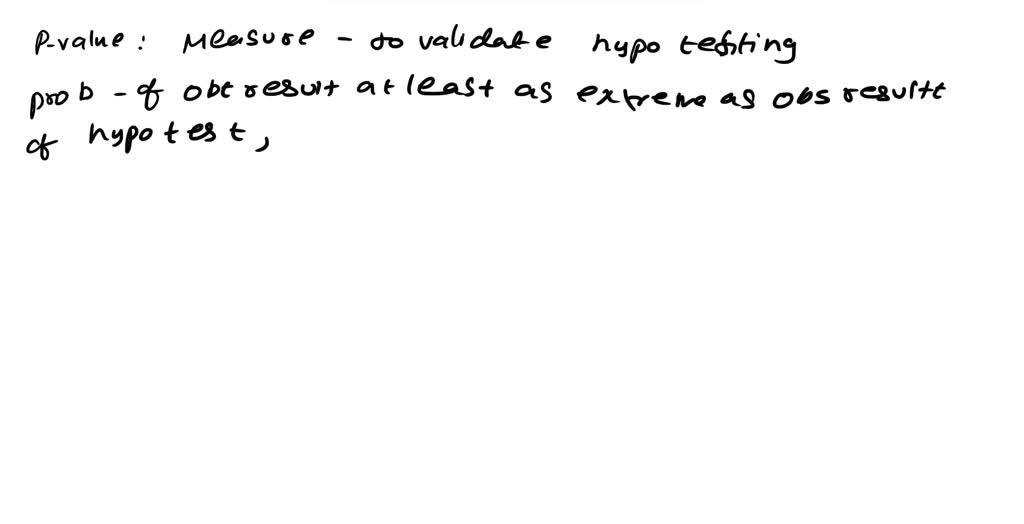 P-value: Measure - to validate hypo testing
prob - of obt result at least as extreme as obs resultt
of hypo test,